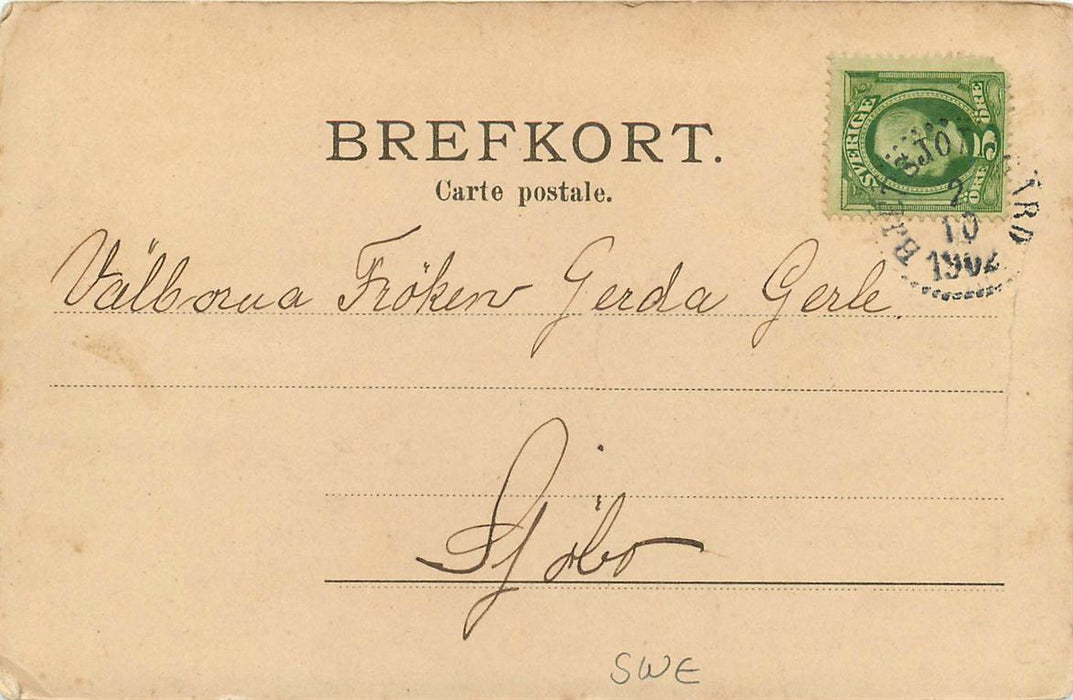 BREFKORT.
Carte postale.
SVERIGE
5
ÖRE
ÖRE
2
10
1902
Välborna Fröken Gerda Gerle.
Sjöbo
SWE